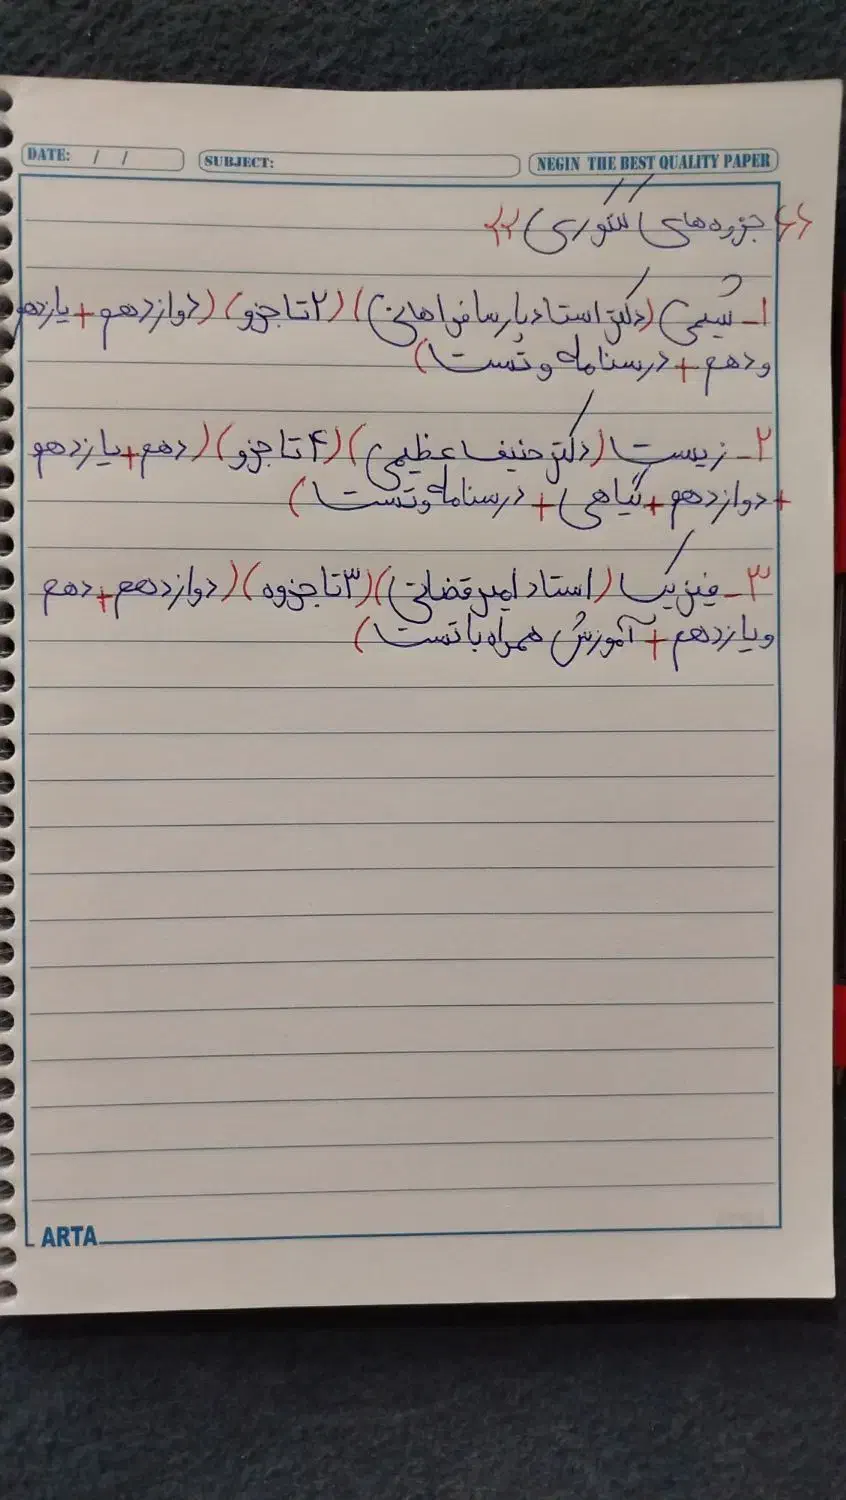 DATE: / /
SUBJECT:
NEGIN THE BEST QUALITY PAPER
«جزوه های کنکوری»
1_ شیمی (دکتر استاد پارسا فراهانی) (۲ تا جزو) (دوازدهم + یازدهم
و دهم + درسنامه و تست)
۲_ زیست (دکتر حنیف عظیمی) (۴ تا جزو) (دهم + یازدهم
+ دوازدهم + گیاهی + درسنامه و تست)
۳_ فیزیک (استاد امیر قضاتی) (۳ تا جزوه) (دوازدهم + دهم
و یازدهم + آموزش همراه با تست)
ARTA